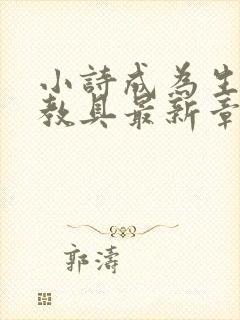 小詩成為生
教具最新章
郭濤